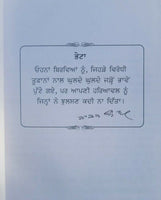 ਭੇਟਾ
ਓਹਨਾਂ ਬਿਰਖਿਆਂ ਨੂੰ, ਜਿਹੜੇ ਵਿਰੋਧੀ
ਤੂਫ਼ਾਨਾਂ ਨਾਲ ਘੁਲਦੇ ਘੁਲਦੇ ਜੜ੍ਹੋਂ ਭਾਵੇਂ
ਪੁੱਟੇ ਗਏ, ਪਰ ਆਪਣੀ ਹਰਿਆਵਲ ਨੂੰ
ਜਿਨ੍ਹਾਂ ਨੇ ਝੁਲਸਣ ਕਦੀ ਨਾ ਦਿੱਤਾ।